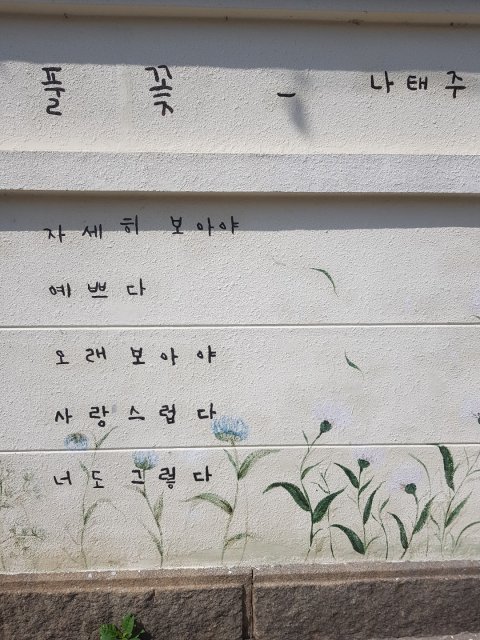 풀 꽃 - 나태주
자세히 보아야
예쁘다
오래 보아야
사랑스럽다
너도 그렇다